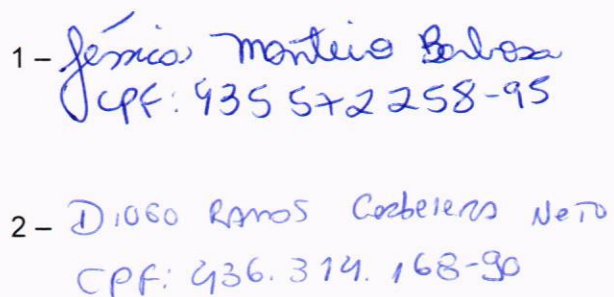 1 – Jéssica Monteiro Barbosa
CPF: 435 572 258-95
2 – DIOGO RAMOS Corbeiero NETO
CPF: 436.314.168-90